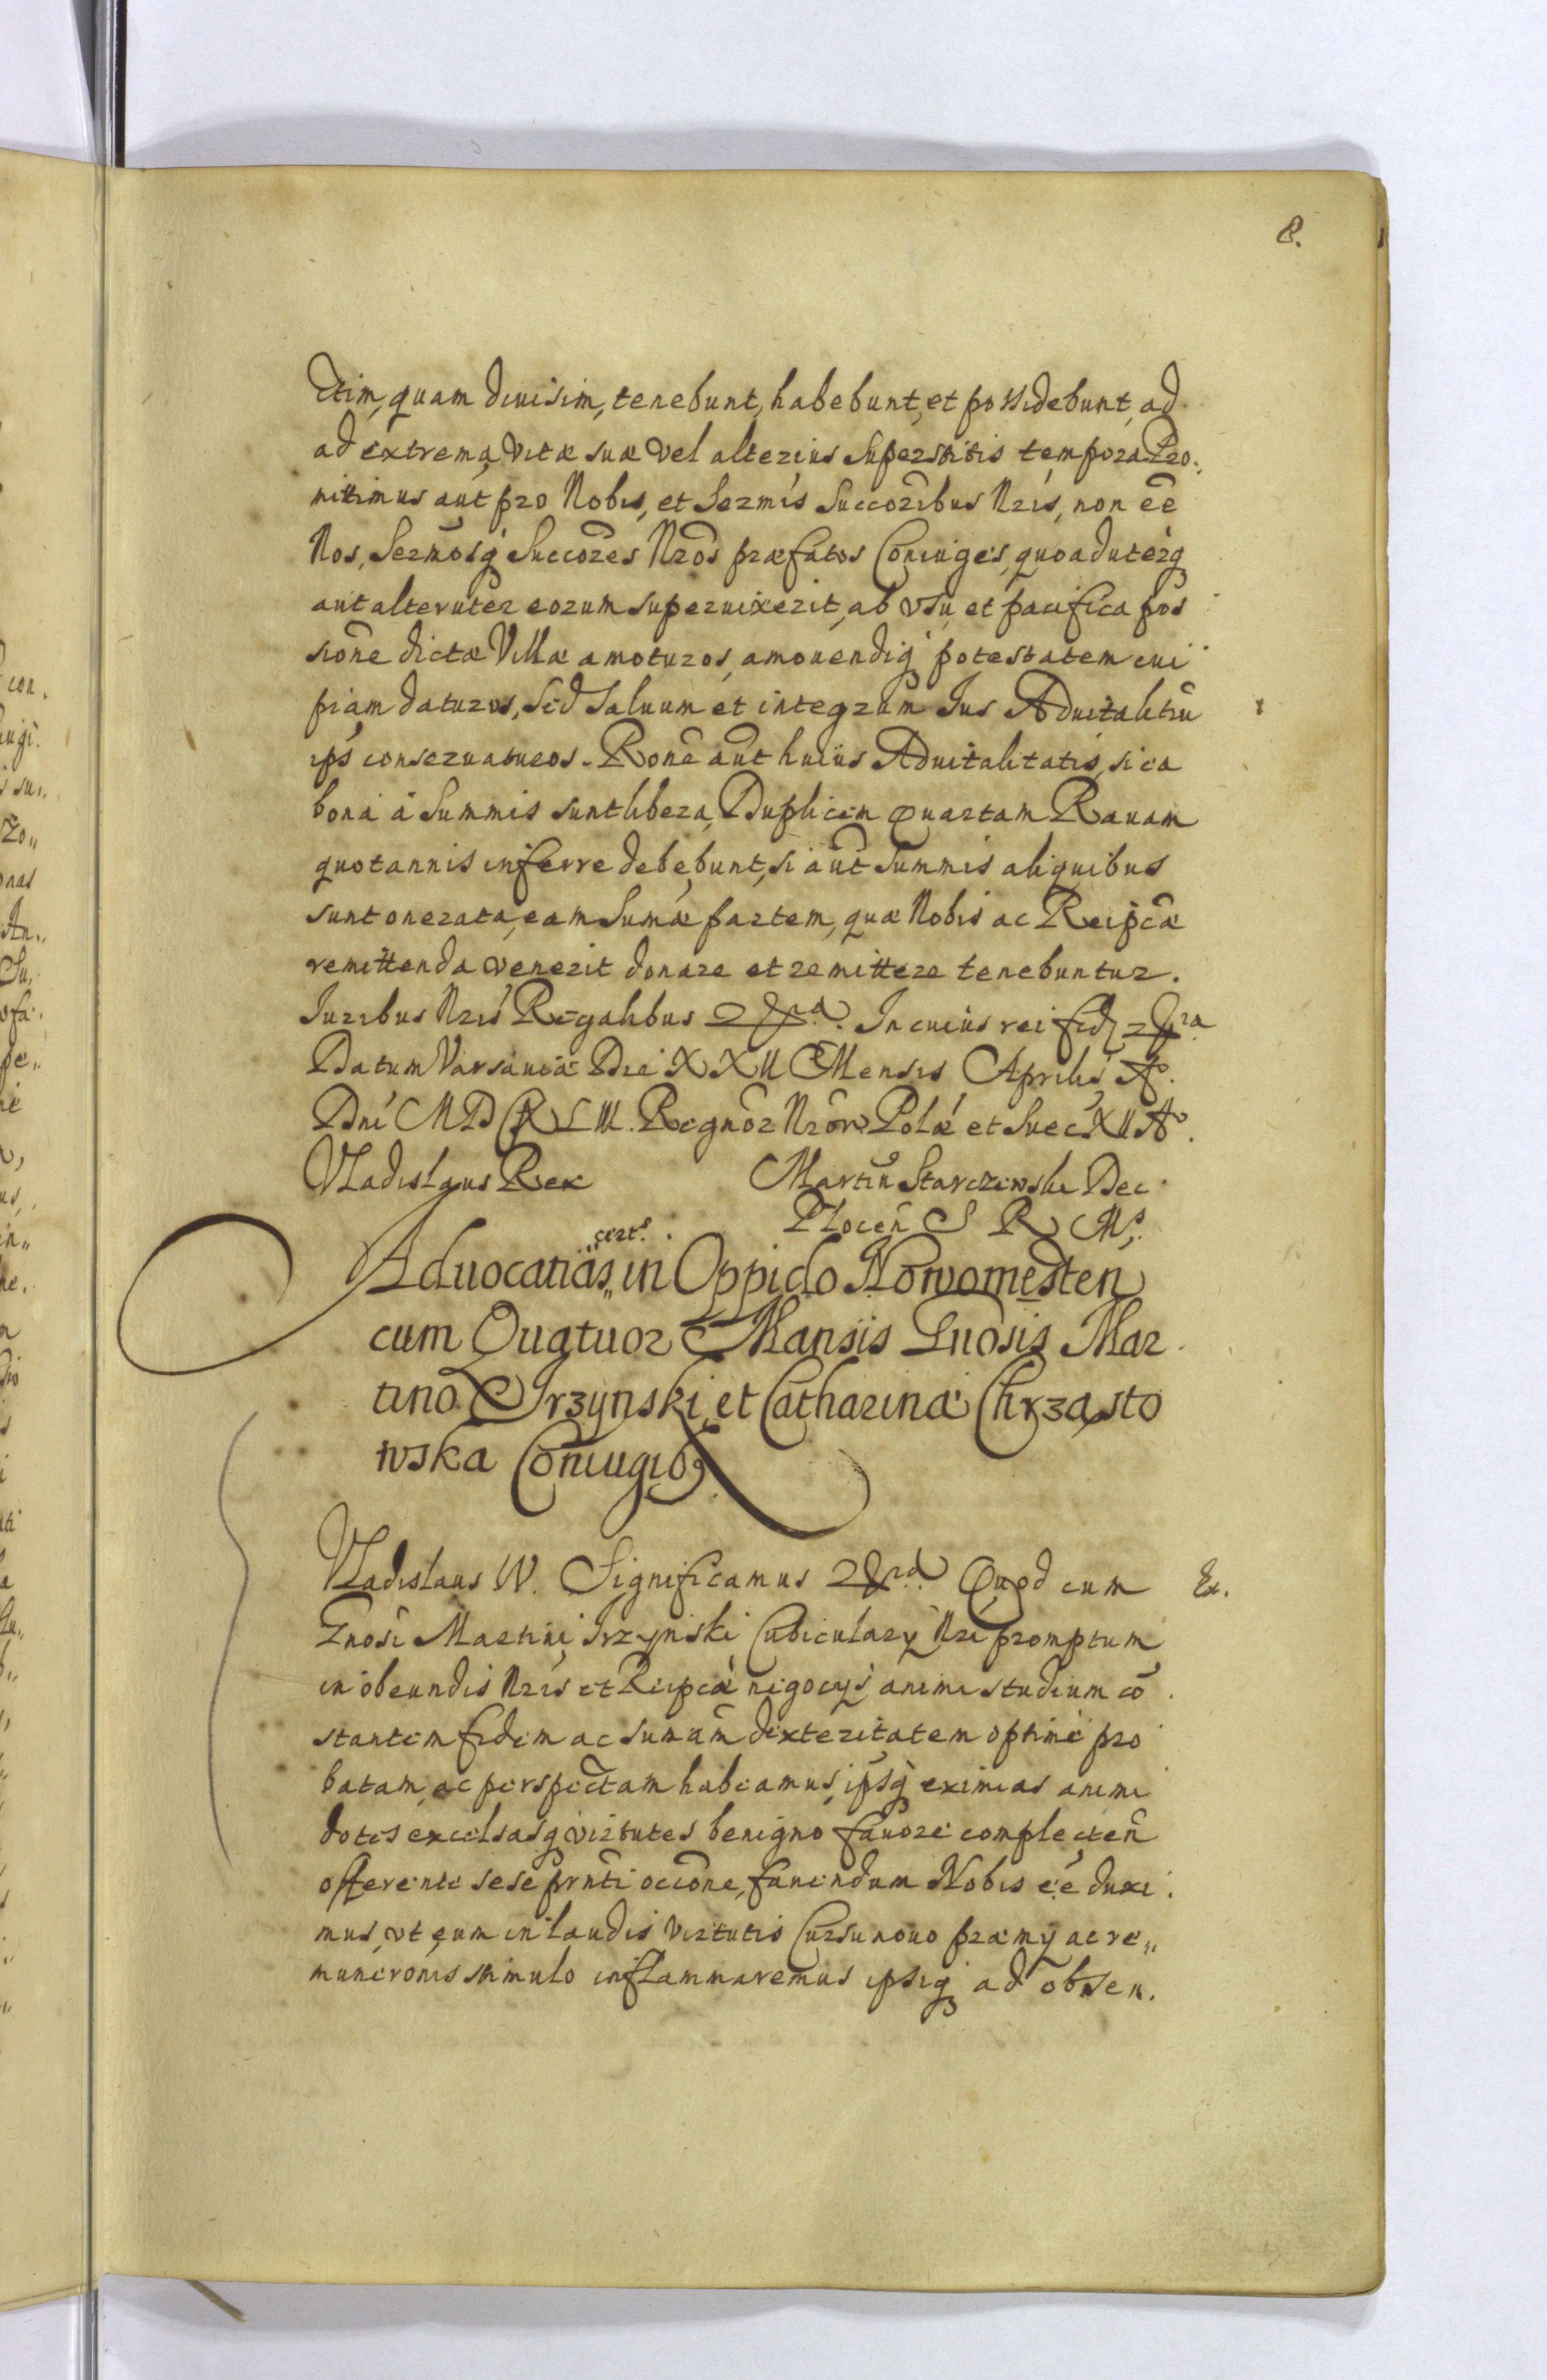 8.
ctim, quam diuisim, tenebunt, habebunt, et possidebunt, ad
ad extrema vitæ suæ vel alterius superstitis tempora Pro.
mittimus aut̃ pro Nobis, et Serm̃is Succoribus Nr̃is, non eẽ
Nos, Serm̃osq̃ Succores Nr̃os præfatos Coniuges, quoad uterq̃
aut alteruter eorum superuixerit, ab vsu et pacifica pos
sione dictæ Villæ amoturos, amouendiq̃ potestatem cui
piam daturos, sed saluum et integrum Ius Aduitalitiũ
ip̃s conseruaturos. Rone aut̃ huius Aduitalitatis, si ea
bona à summis sunt libera, Duplicem Quartam Rauam
quotannis inferre debebunt, si aut̃ summis aliquibus
sunt onerata, eam sum̃æ partem, quæ Nobis ac Reipcæ
remittenda venerit donare et remittere tenebuntur.
Iuribus Nr̃is Regalibus &ra. In cuius rei fid &ra
Datum Varsauiæ Die XXII Mensis Aprilis A°.
Dni MDCXLIII. Regnor Nror Polæ et Suec XII A°.
Vladislaus Rex Martin Starczewski Dec
Plocen S R Ms.
cert.
Aduocatiäs in Oppido Nowomesten
cum Quatuor Mansis Gnosis Mar
tino Irzynski et Catharinæ Chrząsto
wska Coniugib9
Vladislaus IV. Significamus &ra Quod cum
Ex.
Gnosi Martini Irzynski Cubicularÿ Nri promptum
in obeundis Nris et Reipcæ negocÿs animi studium cõ
stantem fidem ac sumam dexteritatem optime pro
batam, ac perspectam habeamus, ipsq̃ eximias animi
dotes excelsasq̃ virtutes benigno fauore complecten
offerente sese prnti occione, faciendum Nobis eẽ duxi.
mus, vt eum in laudis virtutis Cursu nouo præmÿ ac re„
muneronis stimulo inflammaremus ipsiq̃ ad obseu.